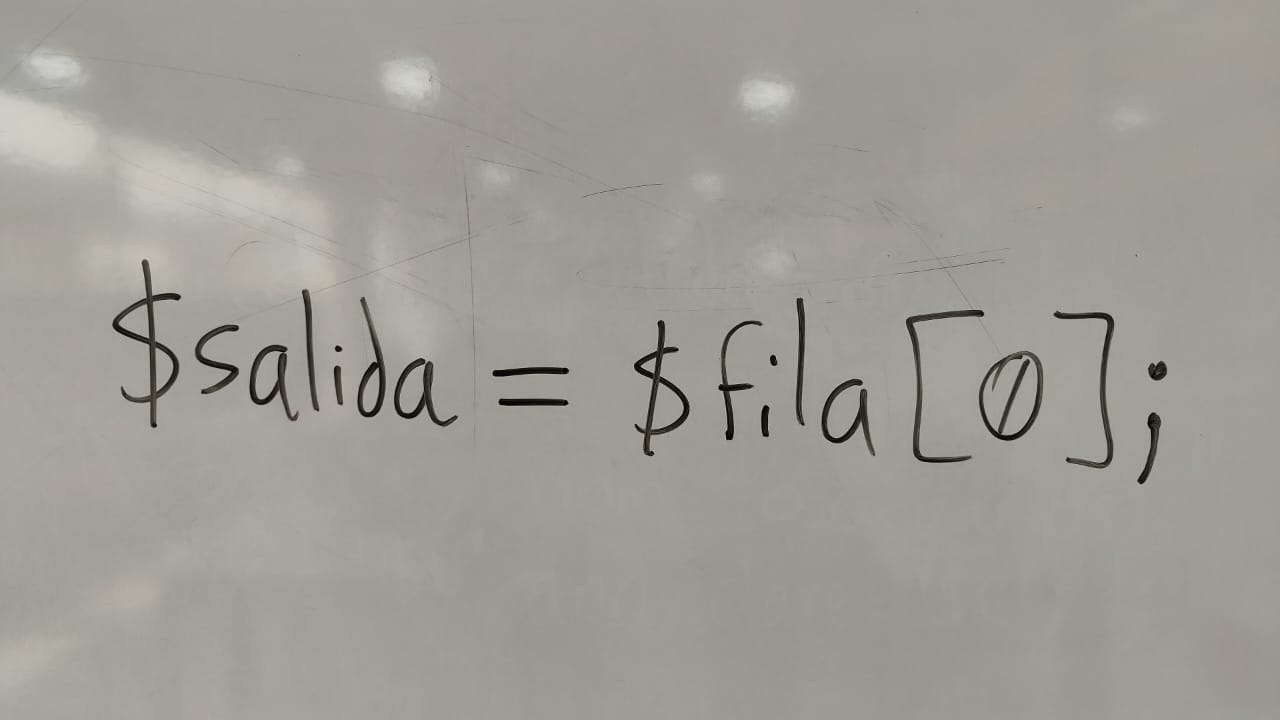 $salida = $fila[0];